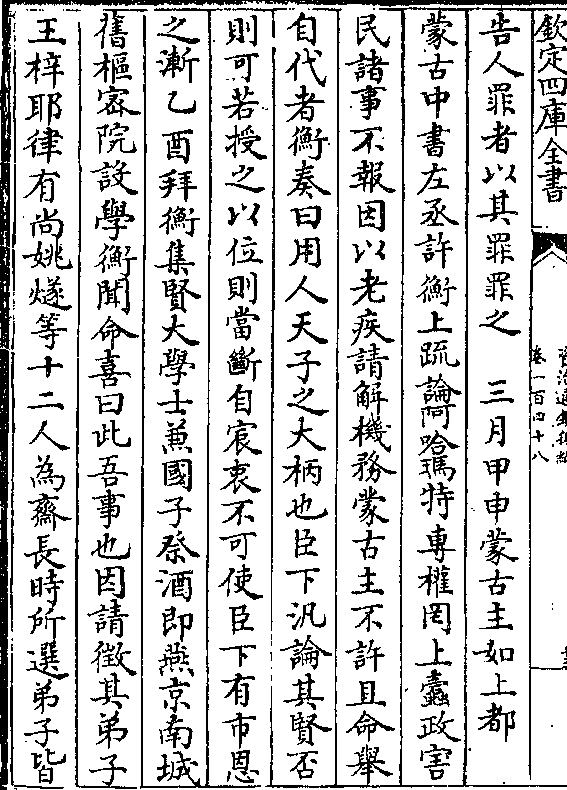 欽定四庫全書
資治通鑑後編
卷一百四十八
告人罪者以其罪罪之　三月甲申蒙古主如上都
蒙古中書左丞許衡上疏論阿哈瑪特專權罔上蠹政害
民諸事不報因以老疾請解機務蒙古主不許且命舉
自代者衡奏曰用人天子之大柄也臣下汎論其賢否
則可若授之以位則當斷自宸衷不可使臣下有市恩
之漸乙酉拜衡集賢大學士兼國子祭酒即燕京南城
舊樞宻院設學衡聞命喜曰此吾事也因請徵其弟子
王梓耶律有尚姚燧等十二人為齋長時所選弟子皆